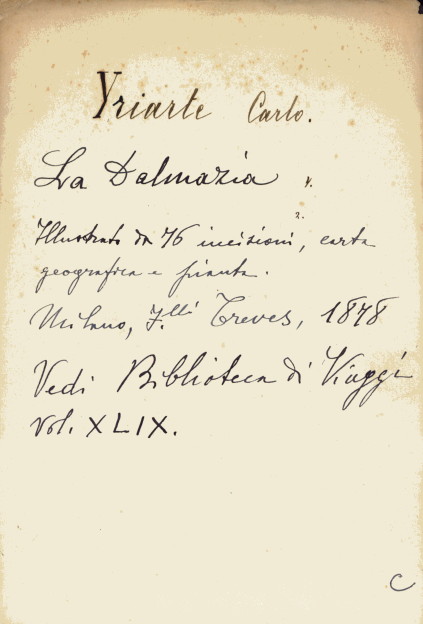 Yriarte Carlo.
La Dalmazia
Illustrato da 76 incisioni, carta
geografica e pianta.
Milano, F.lli Treves, 1878
Vedi Biblioteca di Viaggi
vol. XLIX.
C